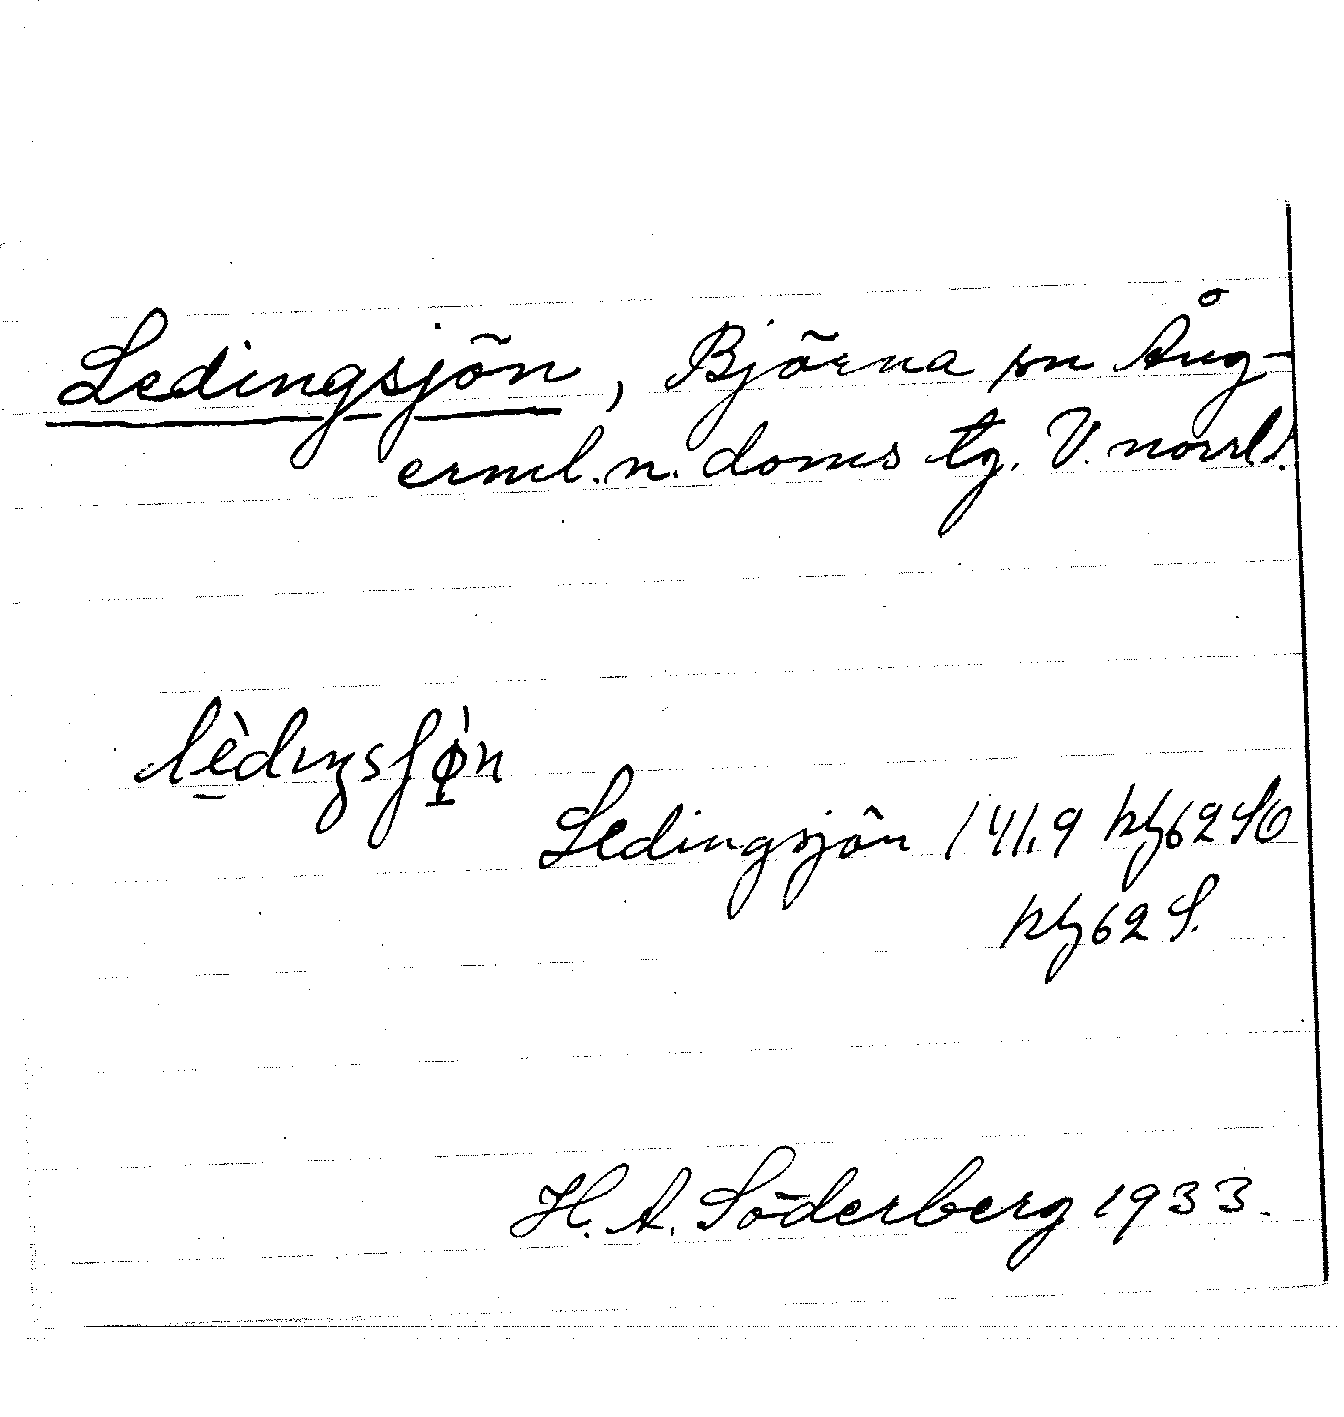 Ledingsjön, Björna sn Ång-
erml. n. doms tg. V. norrl.
Ledingsjön 141,9 kbl 62 SO
kbl 62 S.
H. A. Söderberg 1933.